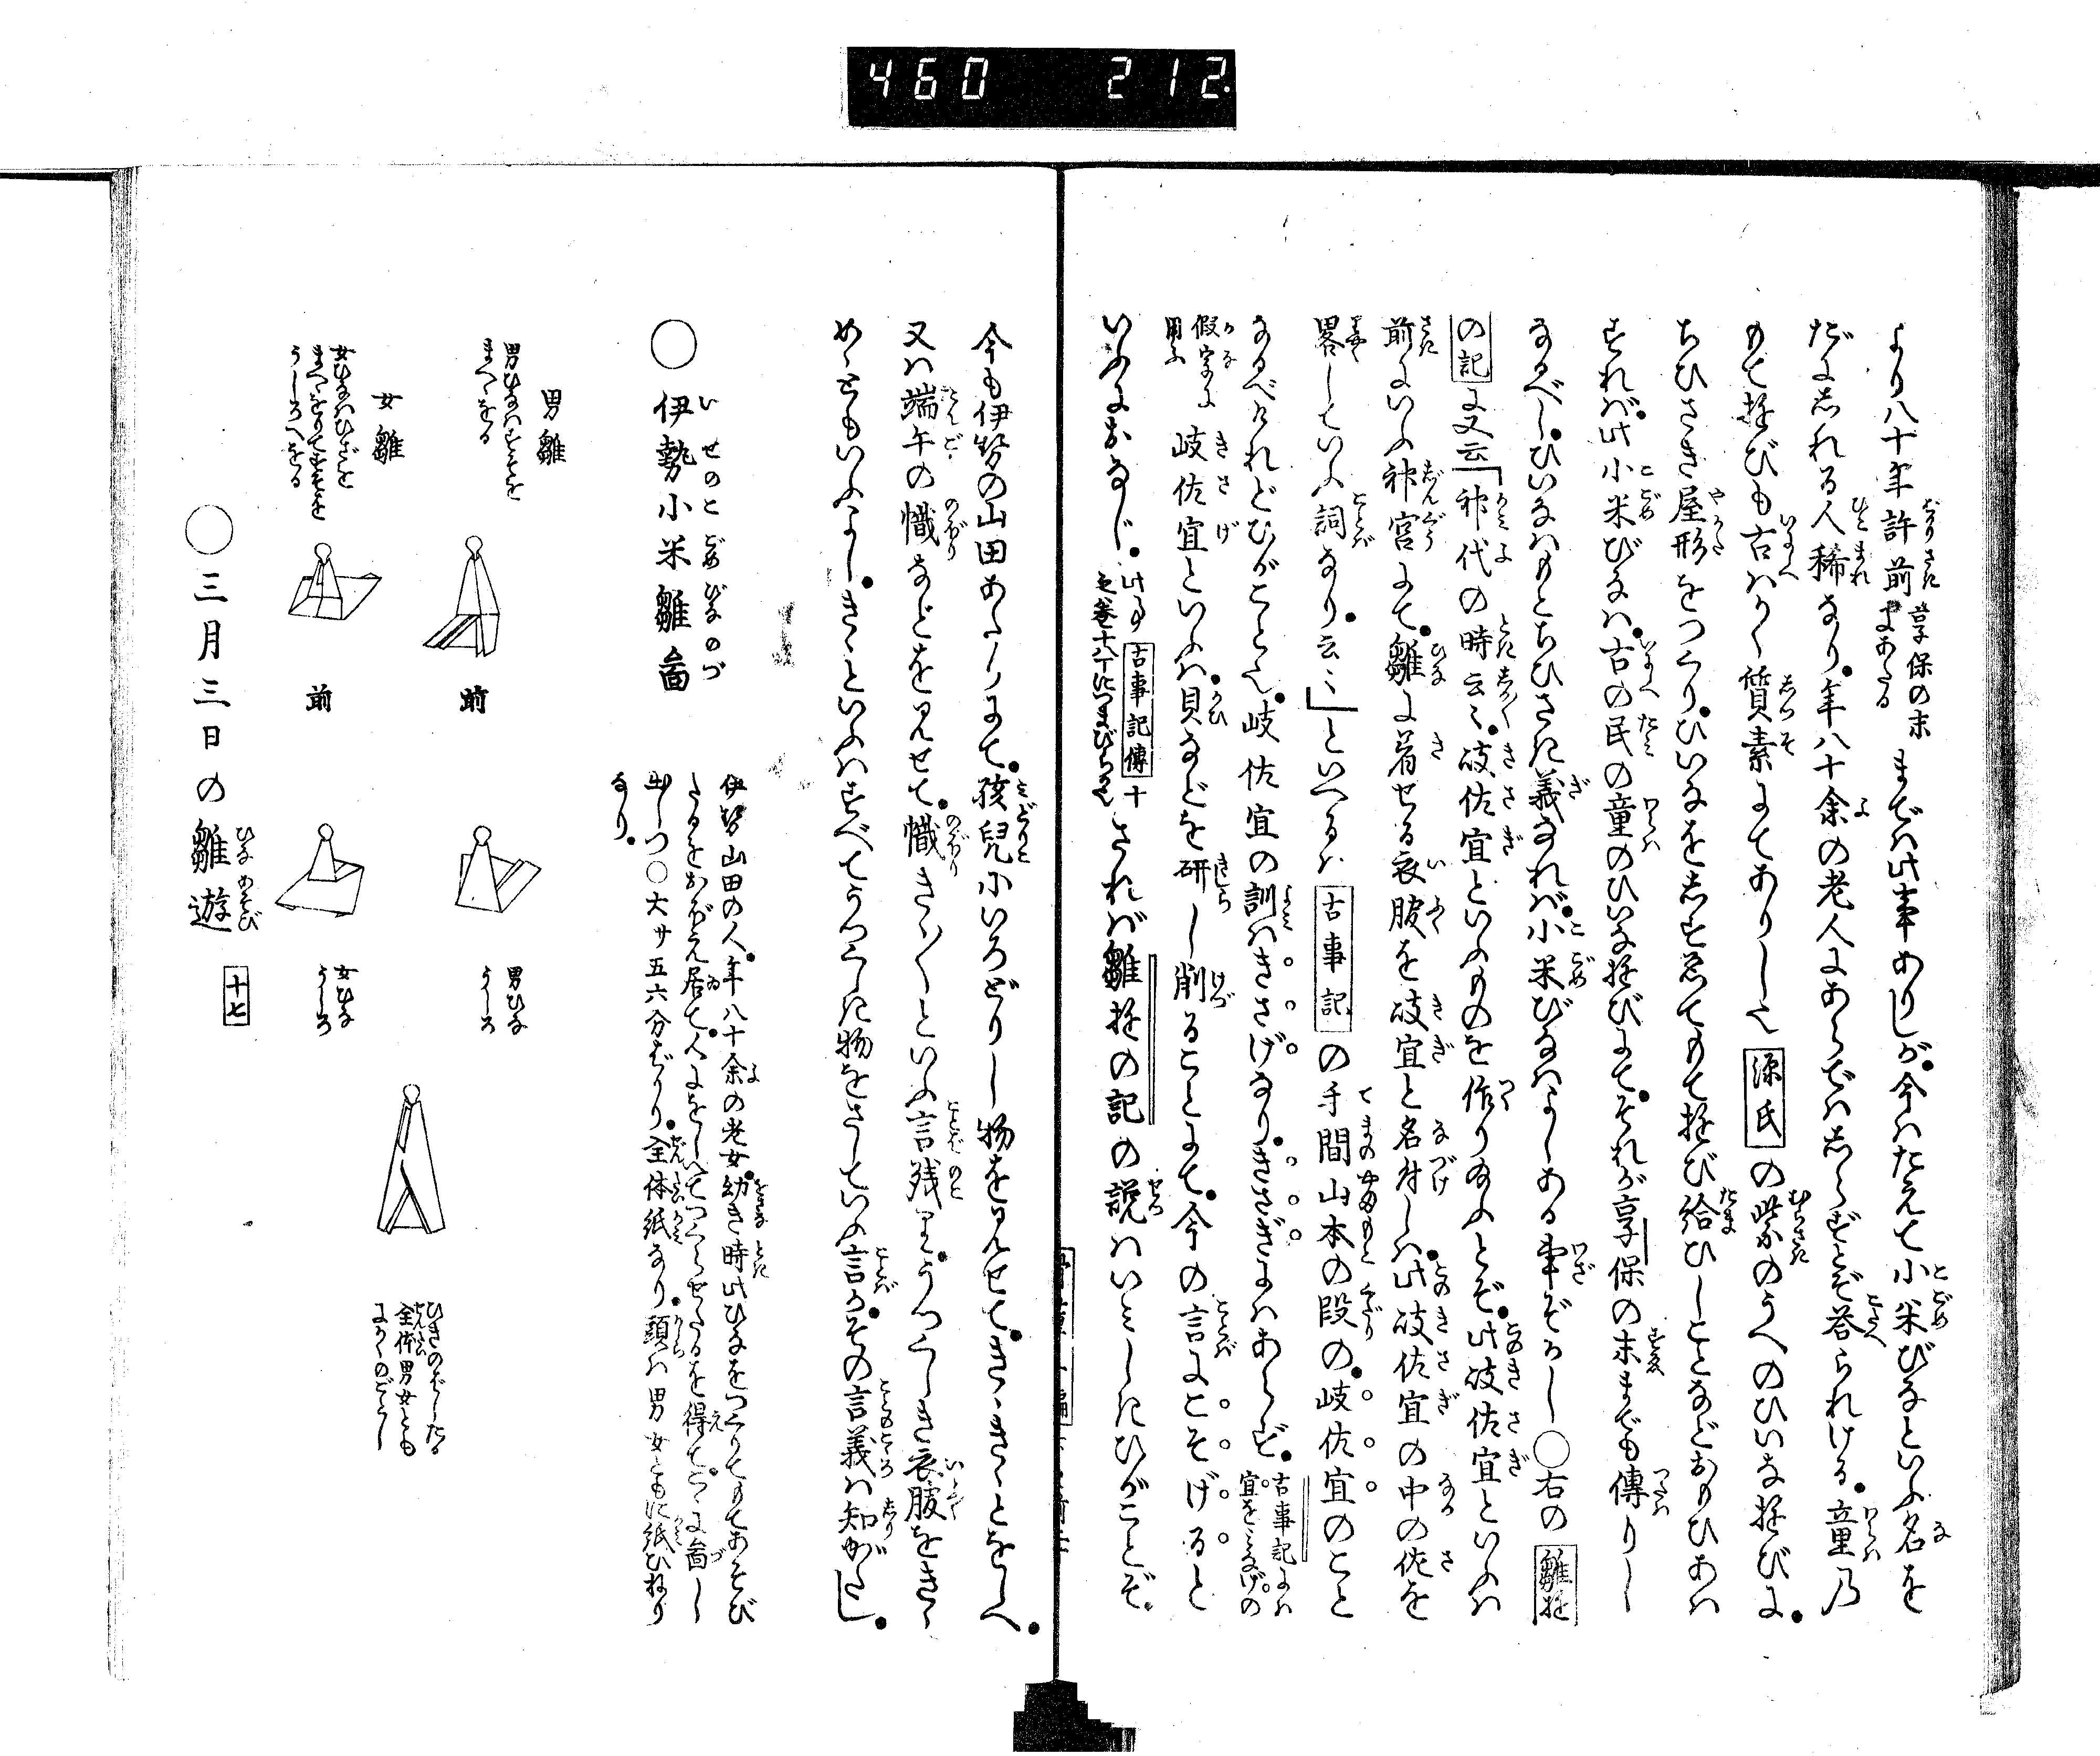 460 212.
より八十年許前享保の末にあたるまでハ此事ありしが今ハたえて小米びなといふ名を
だにしれる人稀なり年八十余の老人にあらでハしらずとぞ答られける童乃
もて遊びも古ハかく質素にてありし也源氏の紫のうへのひいな遊びに
ちひさき屋形をつくりひいなをしすゑてもて遊び給ひしことなどおもひあハ
すれバ此小米びなハ古の民の童のひいな遊びにてそれが享保の末までも傳りし
なるべしひいなハもとちひさき義なれバ小米びなハよしある事ぞかし〇右の雛遊
の記に又云「神代の時云々岐佐宜といふものを作り給ふとぞ此岐佐宜といふハ
前にいふ神宮にて雛に着せる衣服を岐宜と名付しハ此岐佐宜の中の佐を
畧していふ詞なり云々」といへるハ古事記の手間山本の段の岐佐宜のこと
なるべけれどひがこと也岐佐宜の訓ハきさげなりきさぎにハあらず古事記にハ宜をミなげの
假字に用ふ岐佐宜といふハ貝などを研し削ることにて今の言にこそげると
いふにおなじ此事古事記傳十之巻十八丁につまびらか也されバ雛遊の記の説ハいミしきひがことぞ
今も伊勢の山田あたりにて孩兒にいろどりし物を見せてきゝきゝとをしへ
又ハ端午の幟などを見せて幟きゝ〱といふ言残りうつくしき衣服をきゝ
めゝともいふよしきゝといふハすべてうつくしき物をさしていふ言かその言義ハ知がたし
〇伊勢小米雛啚
伊勢山田の人年八十余の老女幼き時此ひなをつくりてもてあそび
たるをおぼえ居て人にをしへてつくらせたるを得てこゝに啚し
出しつ〇大サ五六分ばかり全体紙なり頭ハ男女ともに紙ひねり
なり
男雛
男ひなハすそを
まへゝをる
前
男ひな
うしろ
女雛
女ひなハひざを
まへゝをりてすそを
うしろへをる
前
女ひな
うしろ
ひきのばしたる
全体男女とも
にかくのごとし
〇三月三日の雛遊
十七